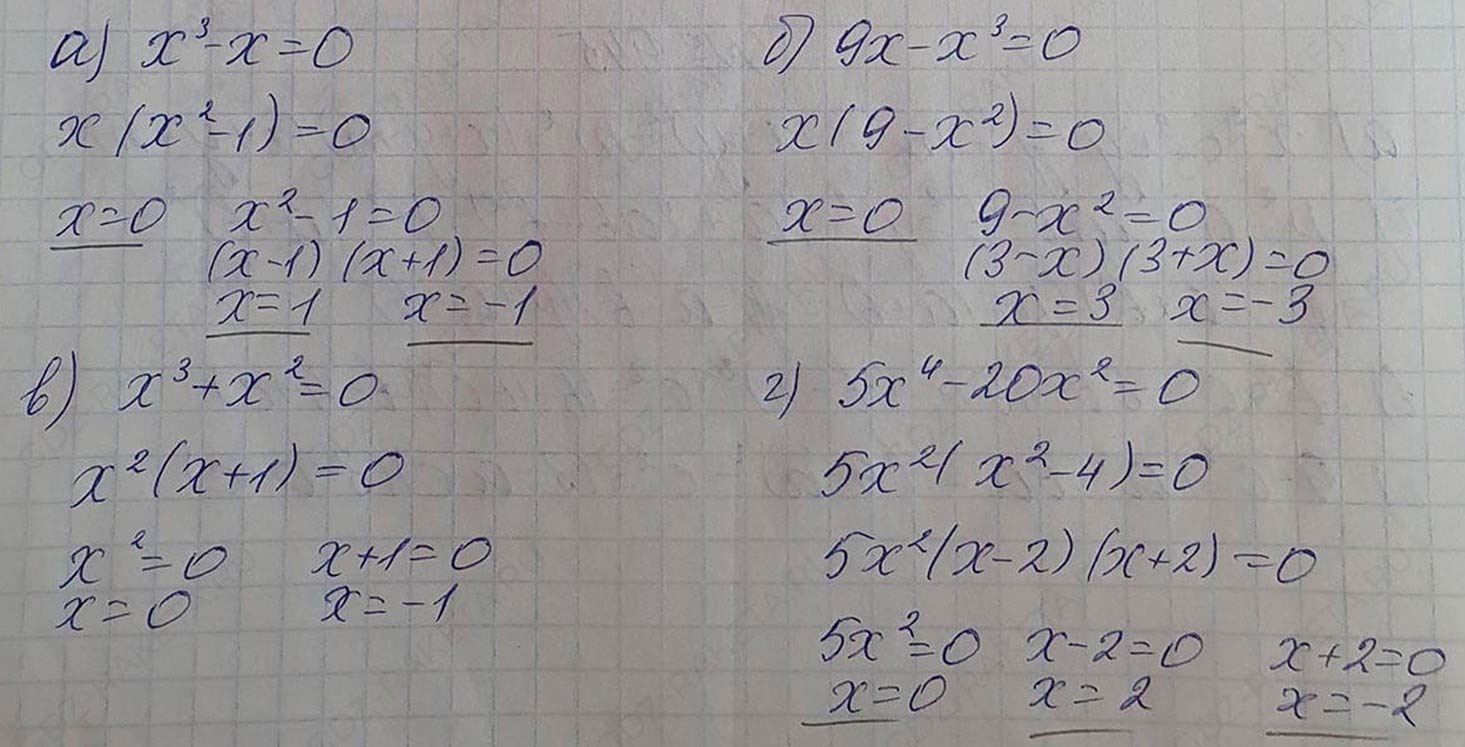 а) x³-x=0
x(x²-1)=0
x=0 x²-1=0
(x-1)(x+1)=0
x=1 x=-1
б) 9x-x³=0
x(9-x²)=0
x=0 9-x²=0
(3-x)(3+x)=0
x=3 x=-3
в) x³+x²=0
x²(x+1)=0
x²=0 x+1=0
x=0 x=-1
г) 5x⁴-20x²=0
5x²(x²-4)=0
5x²(x-2)(x+2)=0
5x²=0 x-2=0 x+2=0
x=0 x=2 x=-2